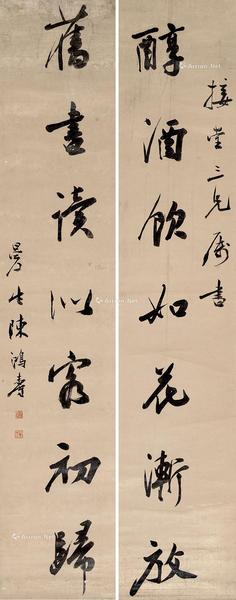 接堂三兄属书
醇酒饮如花渐放
舊書讀似客初歸
曼生陳鴻壽